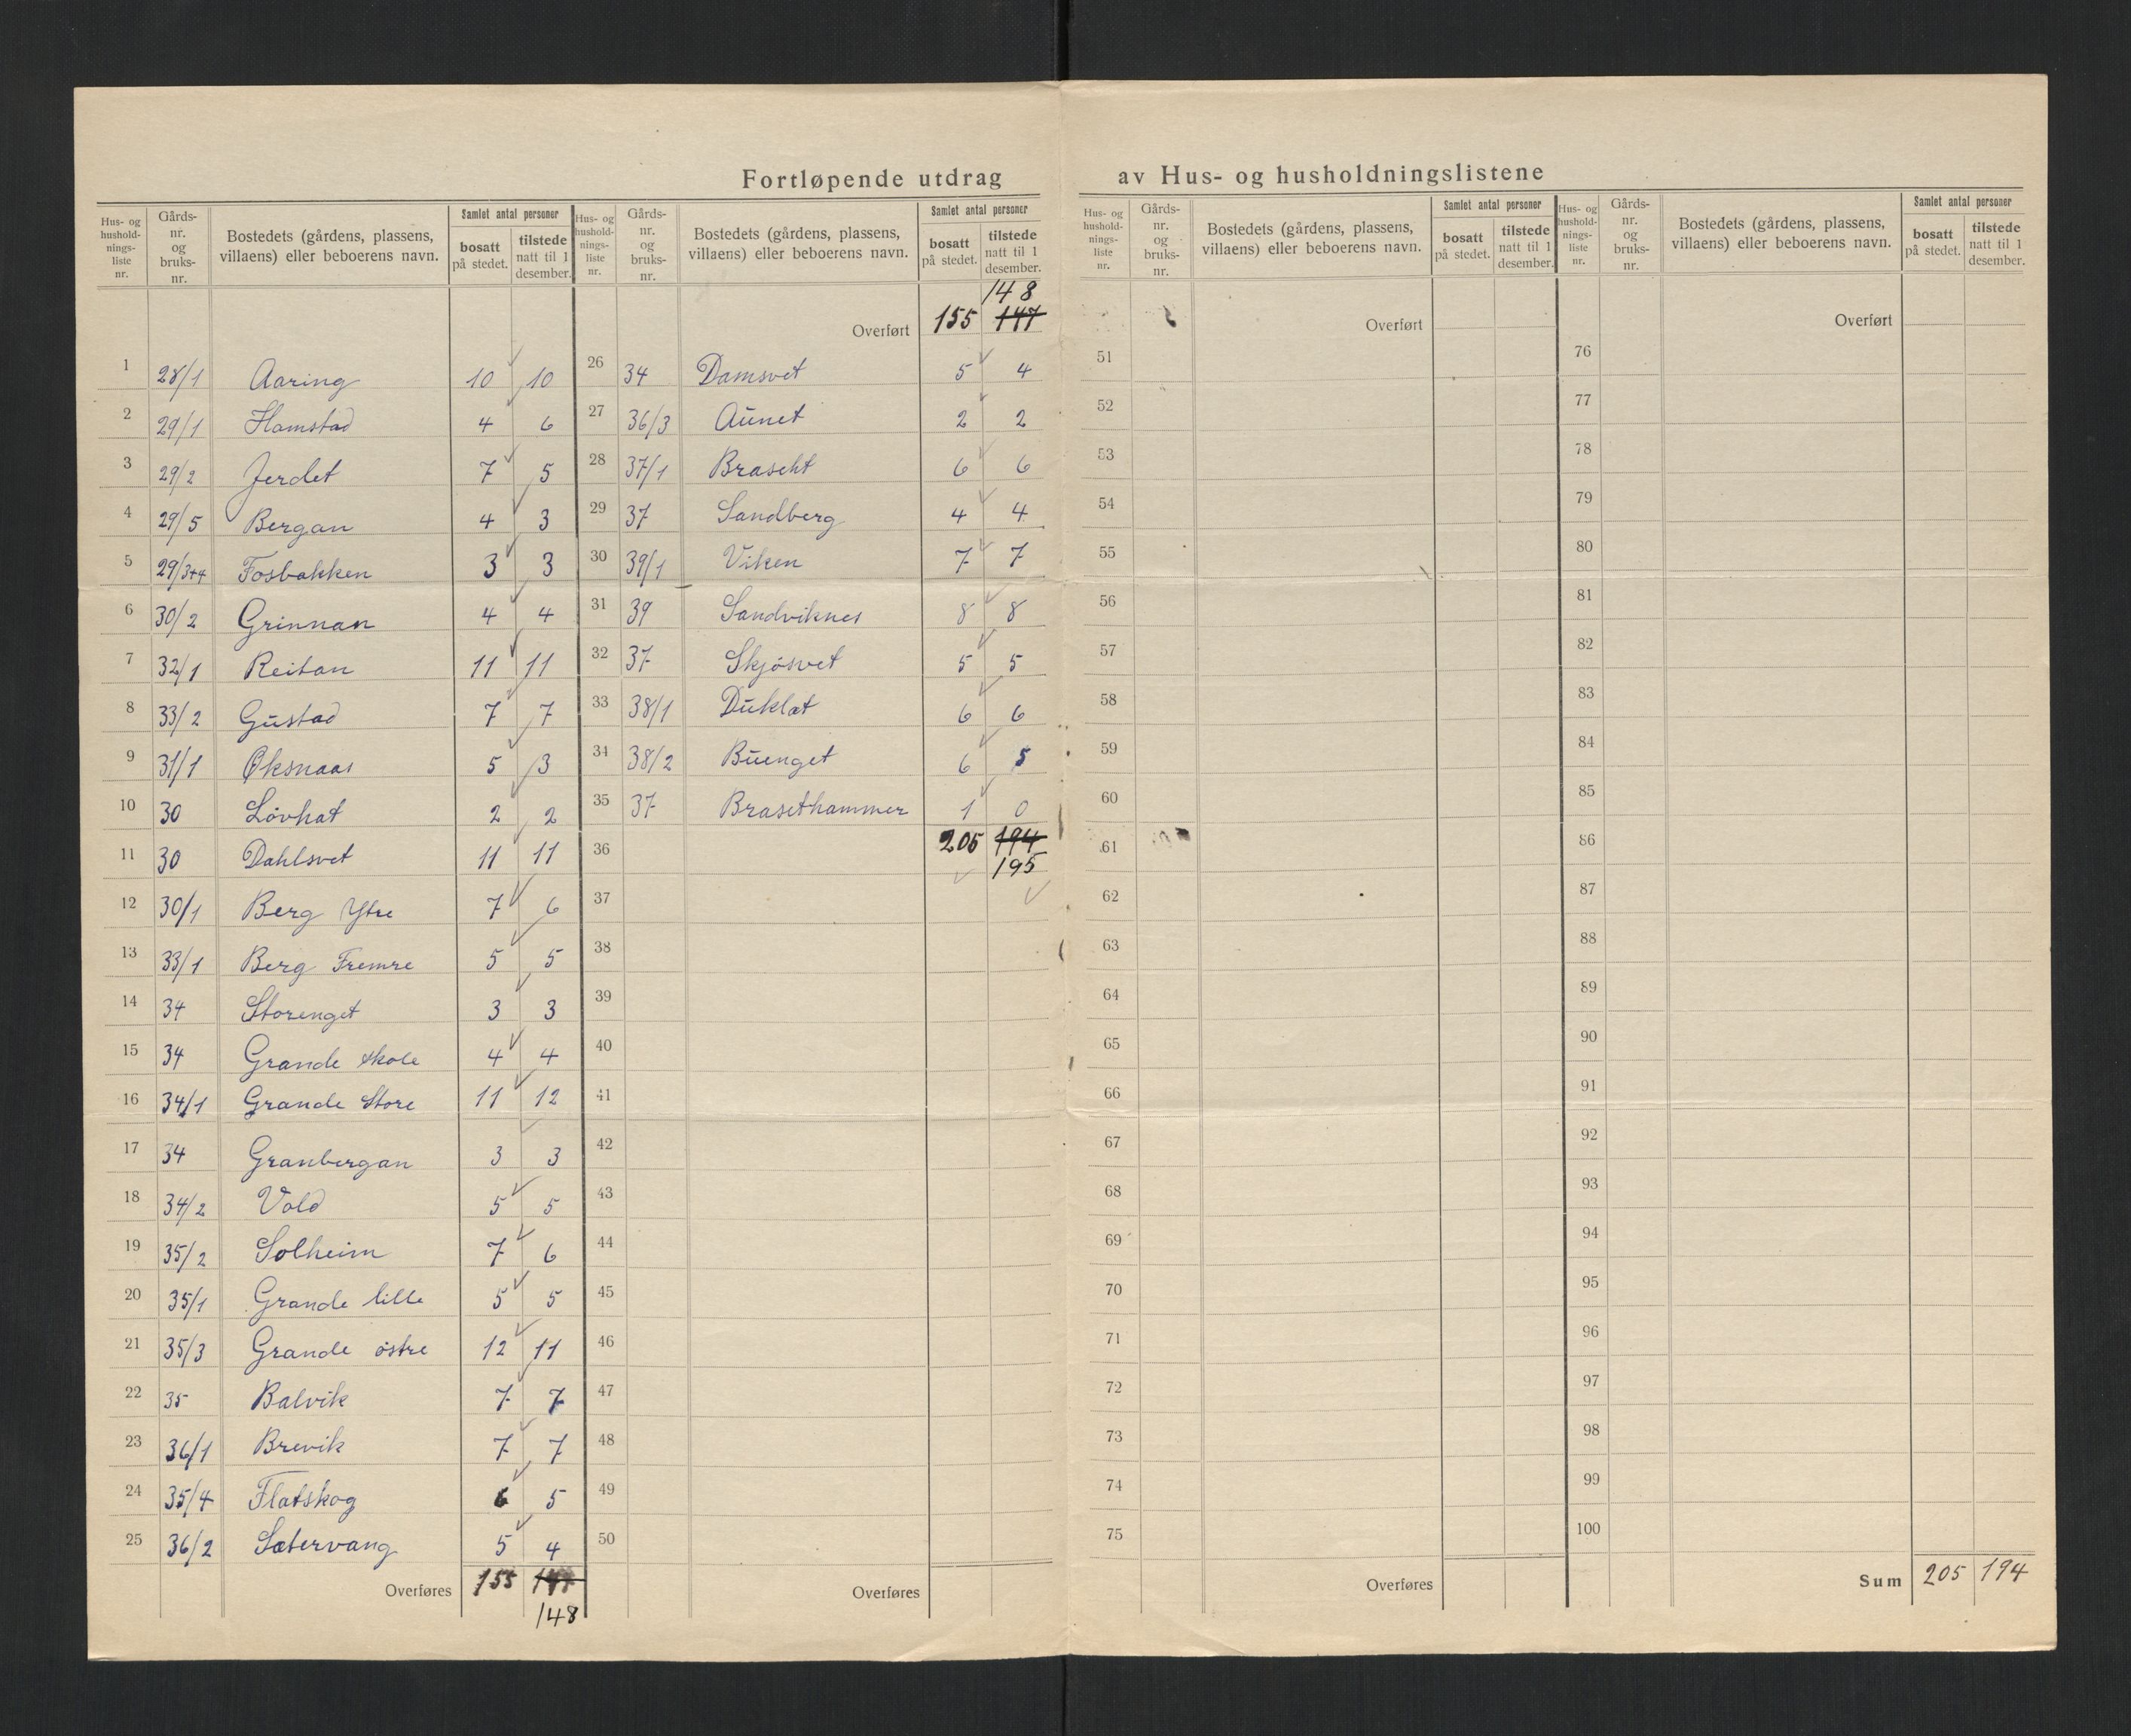 Fortløpende utdrag av Hus- og husholdningslistene
Hus- og hushold-nings-liste nr. Gårds-nr. og bruks-nr. Bostedets (gårdens, plassens, villaens) eller beboerens navn. Samlet antal personer bosatt på stedet. tilstede natt til 1 desember.
1 28/1 Aaring 10 10
2 29/1 Hamstad 4 6
3 29/2 Jerdet 7 5
4 29/5 Bergan 4 3
5 29/3+4 Fosbakken 3 3
6 30/2 Grinnan 4 4
7 32/1 Reitan 11 11
8 33/2 Gustad 7 7
9 31/1 Øksnaas 5 3
10 30 Lövhat 2 2
11 30 Dahlsvet 11 11
12 30/1 Berg Ytre 7 6
13 33/1 Berg Fremre 5 5
14 34 Storenget 3 3
15 34 Grande skole 4 4
16 34/1 Grande Store 11 12
17 34 Granbergan 3 3
18 34/2 Vold 5 5
19 35/2 Solheim 7 6
20 35/1 Grande lille 5 5
21 35/3 Grande östre 12 11
22 35 Balvik 7 7
23 36/1 Brevik 7 7
24 35/4 Flatskog 6 5
25 36/2 Sætervang 5 4
Overføres 155 147
148
Hus- og hushold-nings-liste nr. Gårds-nr. og bruks-nr. Bostedets (gårdens, plassens, villaens) eller beboerens navn. Samlet antal personer bosatt på stedet. tilstede natt til 1 desember.
148
Overført 155 147
26 34 Damsvet 5 4
27 36/3 Aunet 2 2
28 37/1 Braseht 6 6
29 37 Sandberg 4 4
30 39/1 Viken 7 7
31 39 Sandviknes 8 8
32 37 Skjösvet 5 5
33 38/1 Duklæt 6 6
34 38/2 Buenget 6 5
35 37 Brasethammer 1 0
36 205 194
195
37
38
39
40
41
42
43
44
45
46
47
48
49
50
Overføres
Hus- og hushold-nings-liste nr. Gårds-nr. og bruks-nr. Bostedets (gårdens, plassens, villaens) eller beboerens navn. Samlet antal personer bosatt på stedet. tilstede natt til 1 desember.
Overført
51
52
53
54
55
56
57
58
59
60
61
62
63
64
65
66
67
68
69
70
71
72
73
74
75
Overføres
Hus- og hushold-nings-liste nr. Gårds-nr. og bruks-nr. Bostedets (gårdens, plassens, villaens) eller beboerens navn. Samlet antal personer bosatt på stedet. tilstede natt til 1 desember.
Overført
76
77
78
79
80
81
82
83
84
85
86
87
88
89
90
91
92
93
94
95
96
97
98
99
100
Sum 205 194